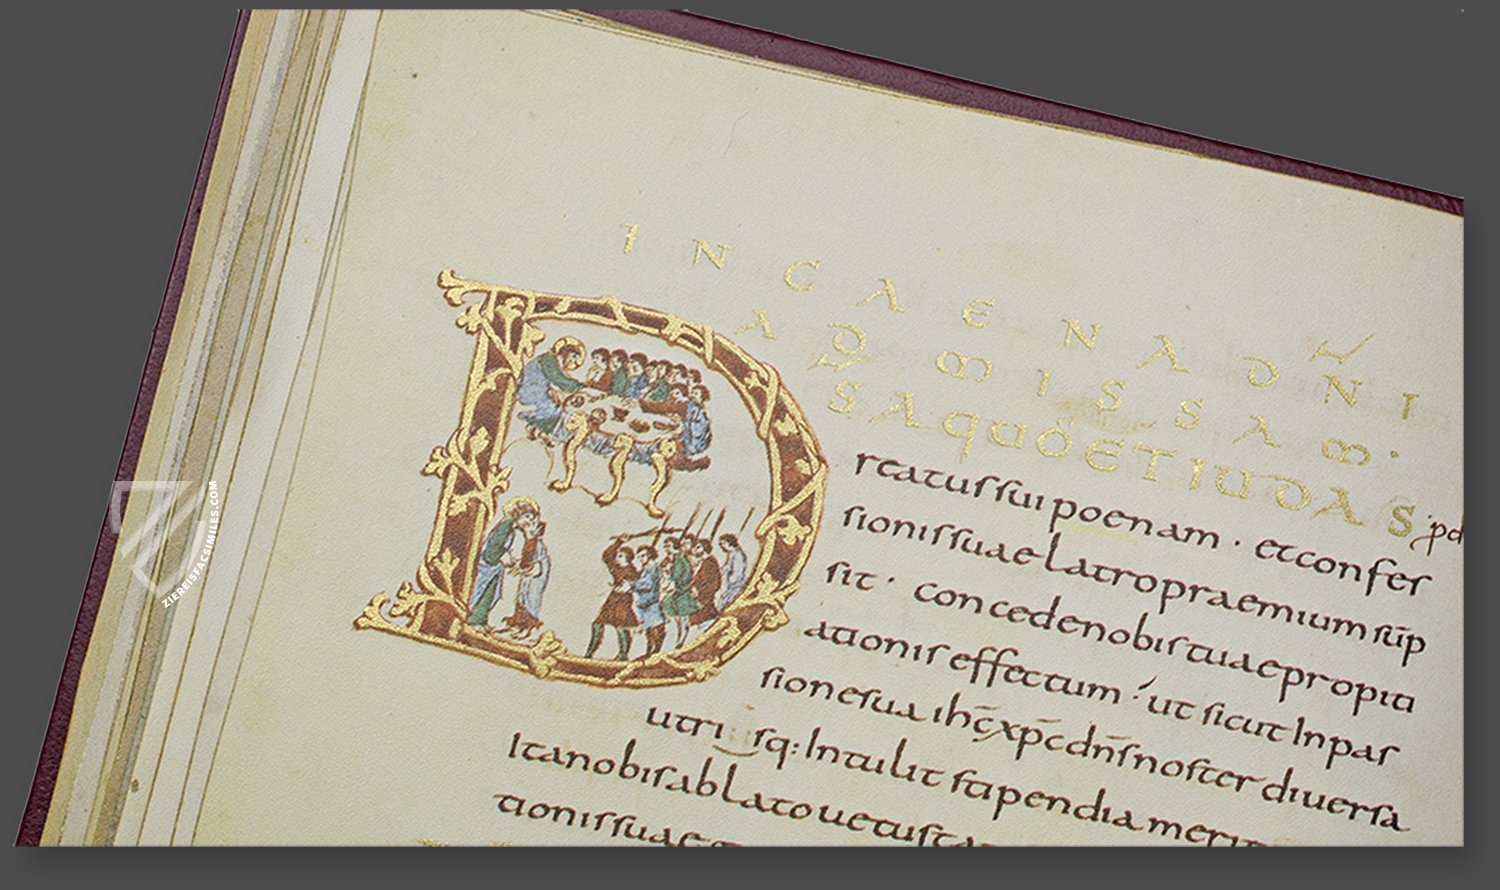 IN CAENA DNI
AD MISSAM.
DS A quo ET IUDAS
reatus sui poenam · et confes
sionis suae latro praemium sūp
sit · concede nobis tuae propiti
ationis effectum · ut sicut In pas
sione sua ihc̄ xp̄c dn̄s noster diuersa
utrisq: Intulit stipendia merit
Ita nobis ablato uetusta
tionis suae
ZIEREISFACSIMILES.COM